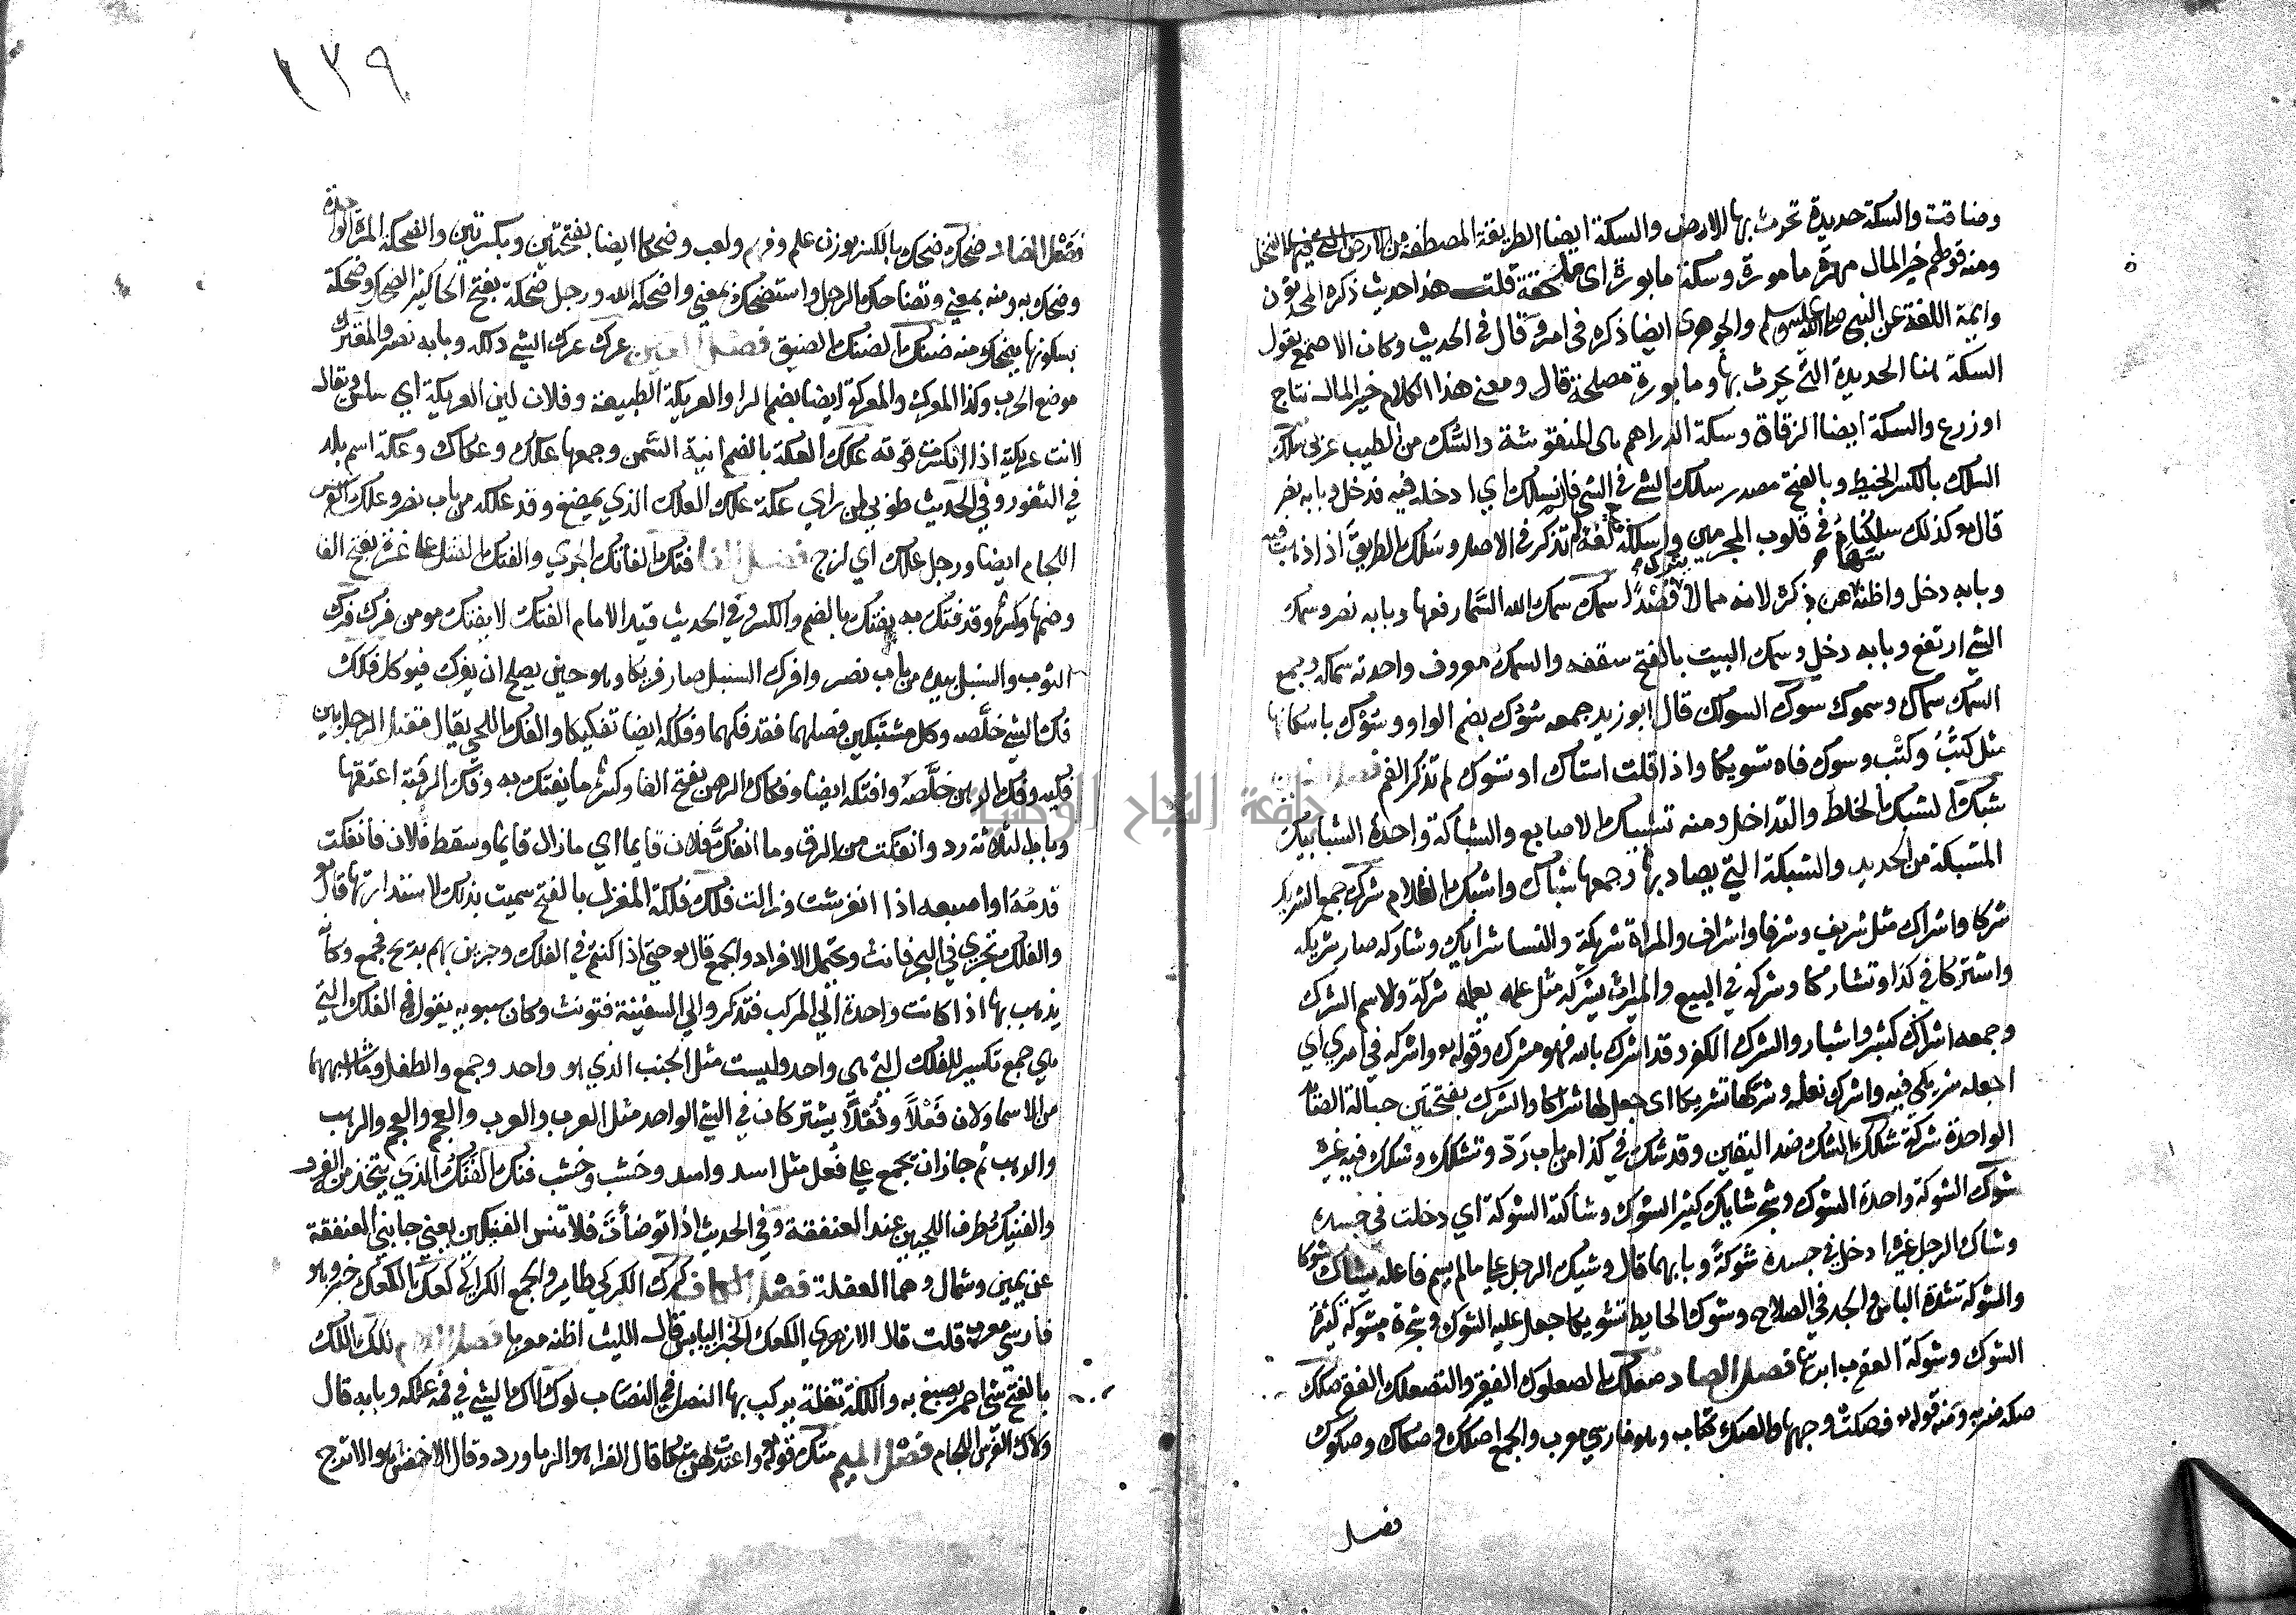 وضاقت والسكة حديدة تحرث بها الارض والسكة ايضا الطريقة المصطفة من النخل
ومنه قولهم خير المال مهرة مامورة وسكة مابورة اي ملقحة قلت هذا حديث ذكره المحدثون
وايمة اللغة عن النبي صلى الله عليه وسلم والجوهري ايضا ذكره في امر وقال في الحديث وكان الاصمعي يقول
السكة هنا الحديدة التي يحرث بها ومابورة مصلحة قال ومعني هذا الكلام خير المال نتاج
او زرع والسكة ايضا الزقاق وسكة الدراهم هي المنقوشة والسك من الطيب عربي سلك
السلك بالكسر الخيط وبالفتح مصدر سلك الشي في الشي فانسلك اي ادخله فيه فدخل وبابه نصر
قال كذلك سلكناه في قلوب المجرمين واسلكه لغة لم تذكر في الاصل وسلك الطريق اذا ذهب فيه
وبابه دخل واظنه عن ذكره لانه مما لا قصدا سمك سمك الله السما رفعها وبابه نصر وسمك
الشي ارتفع وبابه دخل وسمك البيت بالفتح سقفه والسمك معروف واحدته سمكة وجمع
السمك سماك وسموك سوك السواك قال ابو زيد جمعه سوك بضم الواو وسوك باسكانها
مثل كتب وكتب وسوك فاه تسويكا واذا قلت استاك او تسوك لم تذكر الفم فصل الشين
شبك الشبك الخلط والتداخل ومنه تشبيك الاصابع والشباكة واحدة الشبابيك
المشبكة من الحديد والشبكة التي يصاد بها وجمعها شباك واشبك الظلام شرك جمع الشريك
شركا واشراك مثل شريف وشرفا واشراف والمراة شريكة والنسا شرايك وشاركه صار شريكه
واشتركا في كذا وتشاركا وشركه في البيع والميراث يشركه مثل علمه يعلمه شركة والاسم الشرك
وجمعه اشراك كشبر واشبار والشرك الكفر وقد اشرك بالله فهو مشرك وقوله واشركه في امري اي
اجعله شريكي فيه واشرك نعله وشركها تشريكا اي جعل لها شراكا والشرك بفتحتين حبالة الصايد
الواحدة شركة شكك الشك ضد اليقين وقد شك في كذا من باب رد وتشكك وشكك فيه غيره
شوك الشوكة واحدة الشوك وشجر شايك كثير الشوك وشاكته الشوكة اي دخلت في جسده
وشاك الرجل غيره ادخل في جسده شوكة وبابهما قال وشيك الرجل علي ما لم يسم فاعله يشاك شوكا
والشوكة شدة الباس والحد في السلاح وشوك الحايط تشويكا جعل عليه الشوك وشجرة مشوكة كثيرة
الشوك وشوكة العقرب ابرتها فصل الصاد صعلك الصعلوك الفقير والتصعلك الفقر صكك
صكه ضربه ومنه قوله فصكت وجهها والصك كتاب وهو فارسي معرب والجمع اصك وصكاك وصكوك
فصل
١٣٩
فصل الضاد ضحك ضحك بالكسر بوزن علم وفهم ولعب وضحكا ايضا بفتحتين وبكسرتين والضحكة المرة الواحدة
وضحك به ومنه بمعني وتضاحك الرجل واستضحك بمعني واضحكه الله ورجل ضحكة بفتح الحا كثير الضحك وضحكة
بسكونها يضحك منه ضنك الضنك الضيق فصل العين عرك عرك الشي دلكه وبابه نصر والمعترك
موضع الحرب وكذا المعرك والمعركة ايضا بضم الرا والعريكة الطبيعة وفلان لين العريكة اي سلس ويقال
لانت عريكته اذا انكسرت قوته عكك العكة بالضم انية السمن وجمعها عكك وعكاك وعكة اسم بلد
في الثغور وفي الحديث طوبي لمن راي عكة علك العلك الذي يمضغ وقد علكه من باب نصر وعلك الفرس
اللجام ايضا ورجل علك اي لزج فصل الفا فتك الفاتك الجري والفتك القتل علي غرة بفتح الفا
وضمها وكسرها وقد فتك به يفتك بالضم والكسر وفي الحديث قيد الايمان الفتك لا يفتك مومن فرك فرك
الثوب والسنبل بيده من باب نصر وافرك السنبل صار فريكا وهو حين يصلح ان يفرك فيوكل فكك
فك الشي خلصه وكل مشتبكين فصلهما فقد فكهما وفككه ايضا تفكيكا والفك اللحي يقال مقتل الرجل بين
فكيه وفك الرهن خلصه وافتكه ايضا وفكاك الرهن بفتح الفا وكسرها ما يفتك به وفك الرقبة اعتقها
وباب الثلاثة رد وانفكت من الرق وما انفك فلان قايما اي مازال قايما وسقط فلان فانفكت
قدمه او اصبعه اذا انفرجت وزالت فلك فلكة المغزل بالفتح سميت بذلك لاستدارتها قال
والفلك تجري في البحر فانث ويحتمل الافراد والجمع قال حتي اذا كنتم في الفلك وجرين بهم بريح فجمع وكانه
يذهب بها اذا كانت واحدة الي المركب فتذكر والي السفينة فتونث وكان سيبويه يقول في الفلك التي
هي جمع تكسير للفلك التي هي واحد وليست مثل الجنب الذي هو واحد وجمع والطفل وما اشبههما
من الاسما ولان فعلا وفعلا يشتركان في الشي الواحد مثل العرب والعرب والعجم والعجم والرهب
والرهب ثم جاز ان يجمع علي فعل مثل اسد واسد وخشب وخشب فنك الفنك الذي يتخذ منه الفرو
والفنيك طرف اللحيين عند العنفقة وفي الحديث اذا توضات فلا تنس الفنيكين يعني جانبي العنفقة
عن يمين وشمال وهما المغفلة فصل الكاف كرك الكركي طاير والجمع الكراكي كعك الكعك خبز وهو
فارسي معرب قلت قال الازهري الكعك الخبز اليابس قال الليث اظنه معربا فصل اللام لكك اللك
بالفتح شي احمر يصبغ به واللك ثفله يركب بها النصل في النصاب لوك لاك الشي في فمه علكه وبابه قال
ولاك الفرس اللجام فصل الميم متك قوله واعتدت لهن متكا قال الفرا هو الزماورد وقال الاخفش هو الاترج
جامعة النجاح الوطنية